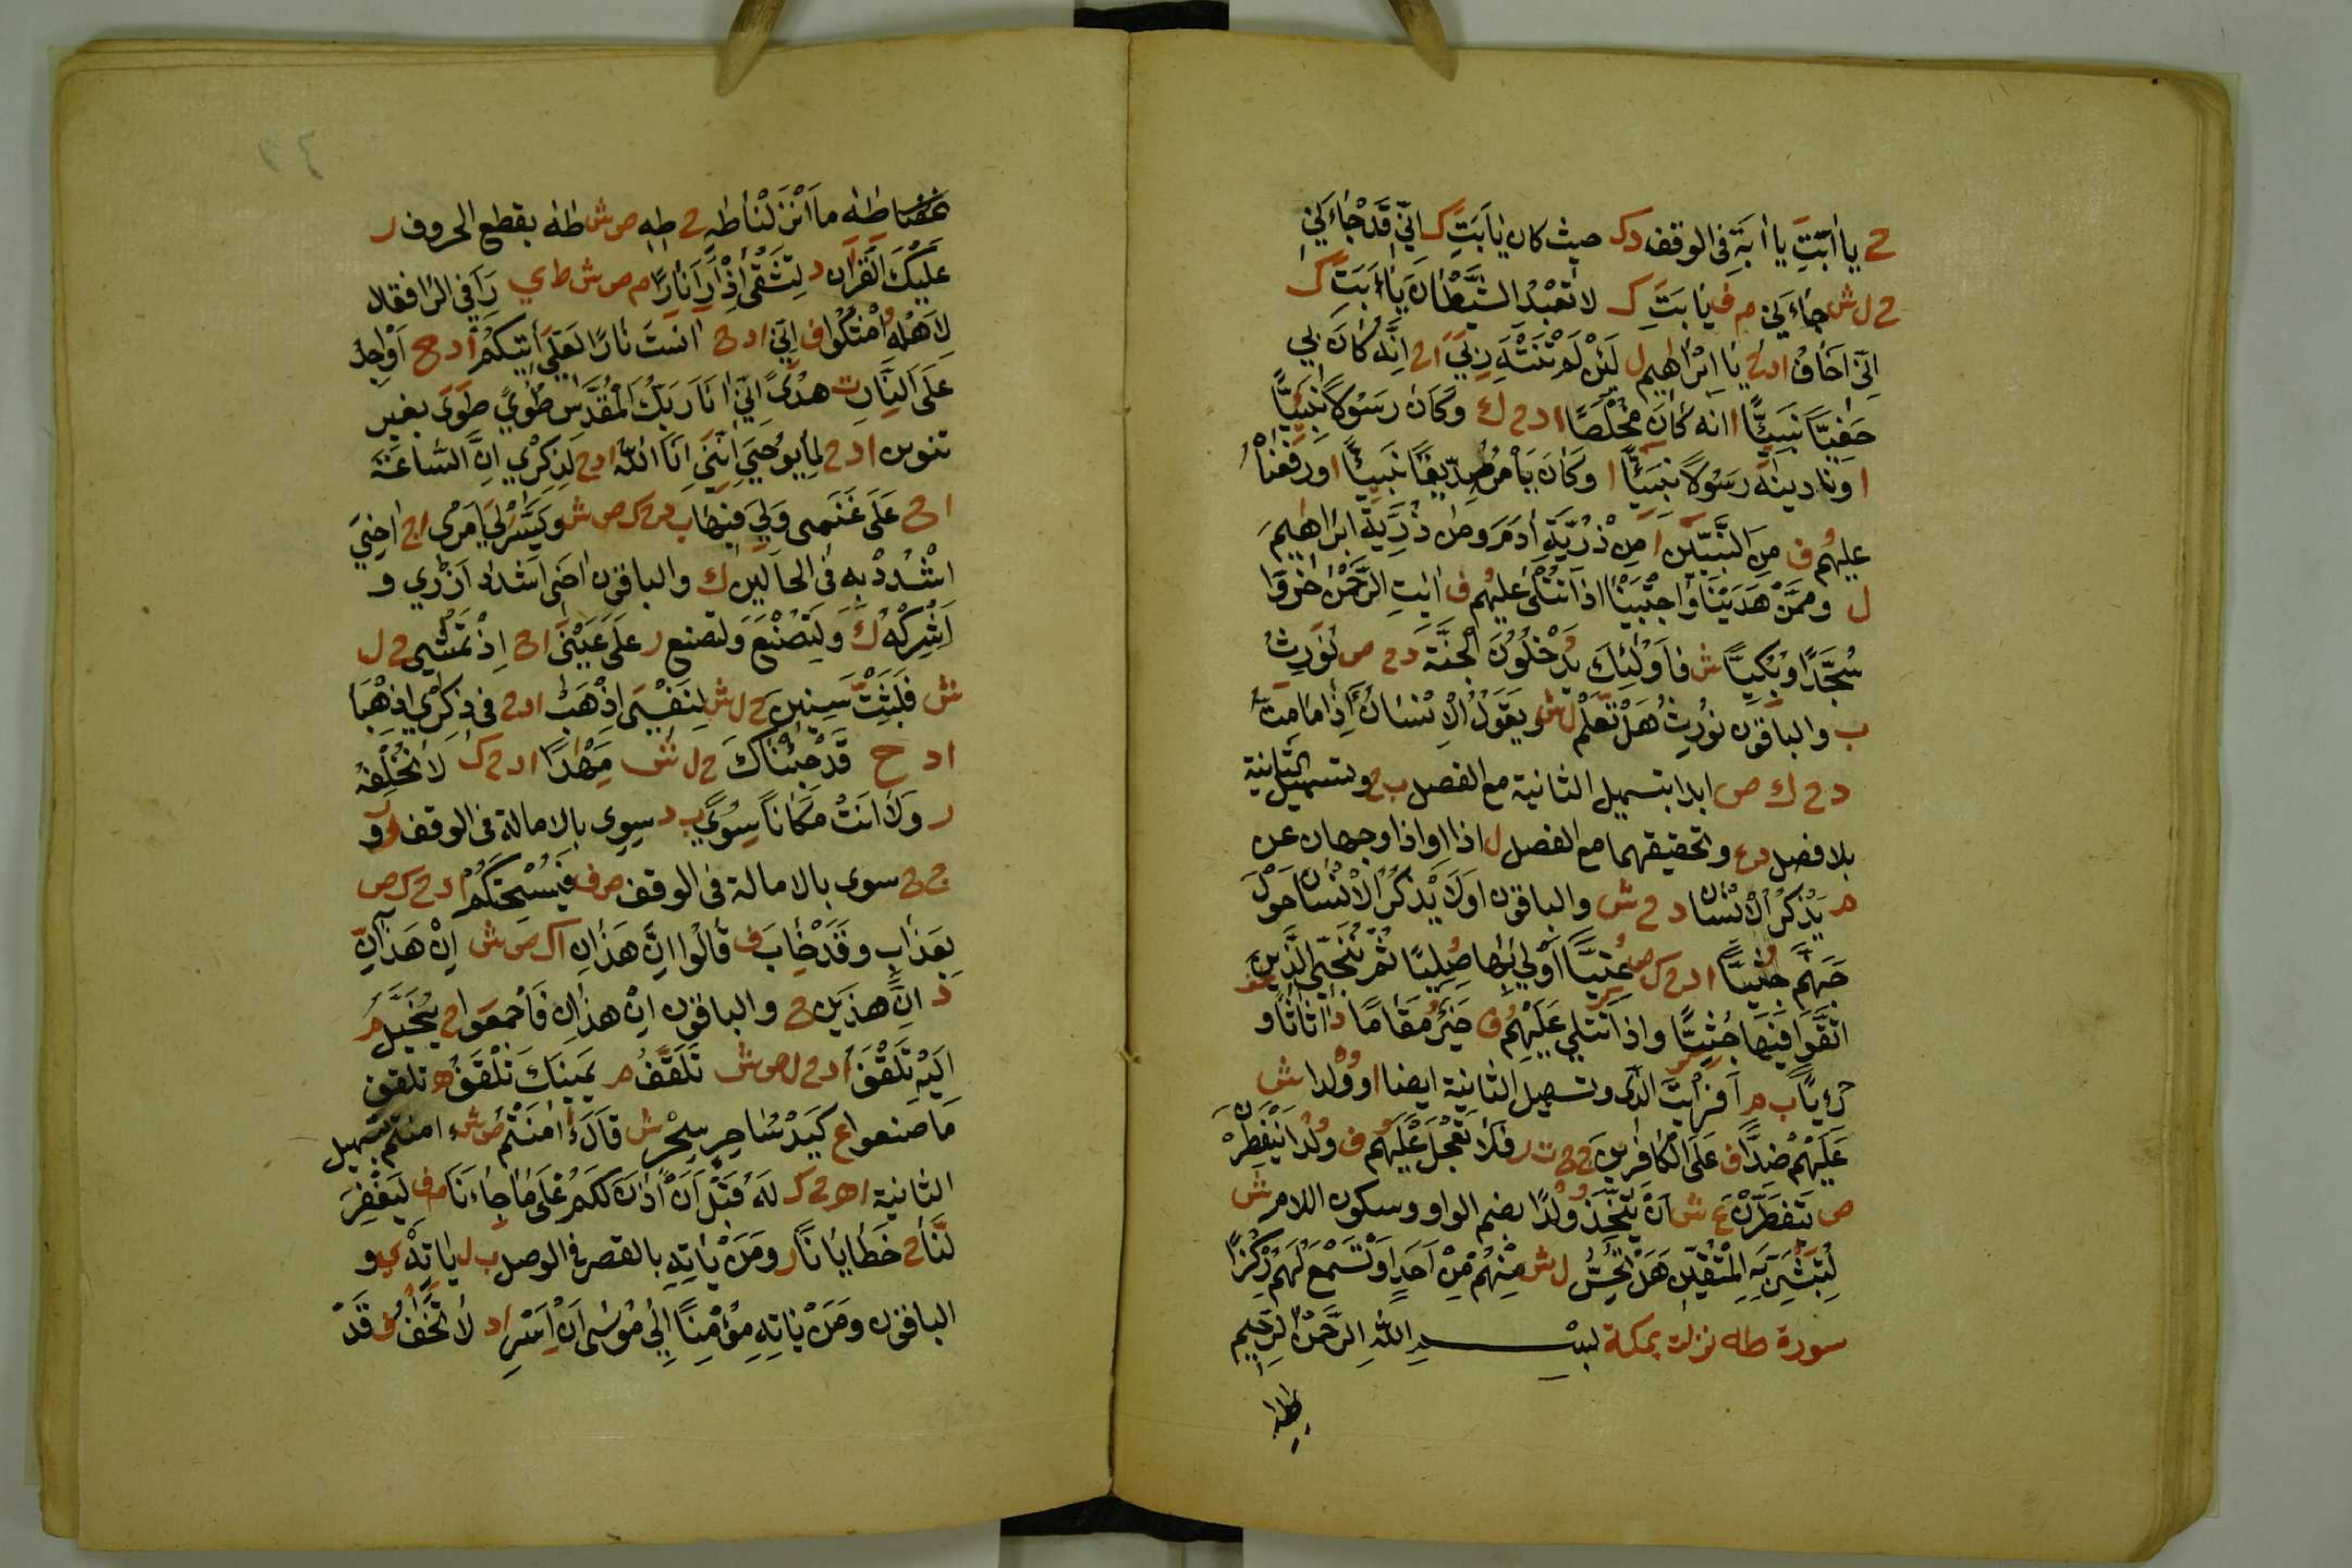 ح يا أبت يا أبه في الوقف د ك حيث كان يا أبت ك إني قد جاءني
ح ل ش جاءني م ف يا أبت ك لا تعبد الشيطان يا أبت ك
إني أخاف ا د ح يا إبراهيم ل لئن لم تنته ربي ا ح إنه كان بي
حفيا نبيئا ا انه كان مخلصا ا د ح ك وكان رسولا نبيئا
ا وناديناه رسولا نبيئا ا وكان يأمر صديقا نبيئا ا ورفعناه
عليهم ف من النبيين ا من ذرية آدم ومن ذرية ابراهيم
ل وممن هدينا واجتبينا اذا تتلى عليهم ف آيت الرحمن خروا
سجدا وبكيا ش فاولئك يدخلون الجنة د ح ص نورث
ب والباقون نورث هل تعلم ل ش ويقول الانسان أإذا ما مت
د ح ك ص ابدا بتسهيل الثانية مع الفصل ب ح وتسهيل الثانية
بلا فصل د ع وتحقيقهما مع الفصل ل اذا او اذا وجهان عن
م يذكر الانسان د ح ش والباقون اولا يذكر الانسان حول
جهنم جثيا ا د ح ك ص عتيا أولى بها صليا ثم ننجي الذين
اتقوا فيها جثيا واذا تتلى عليهم ف خير مقاما د أثاثا و
رءيا ب م أفرأيت الذى وتسهيل الثانية ايضا ا وولدا ش
عليهم ضدا ف على الكافرين ح ت ر فلا تعجل عليهم ف ولدا ينفطرن
ص يتفطرن ع ش أن يتخذ ولدا بضم الواو وسكون اللام ش
لتبشر به المتقين هل تحس ل ش منهم من أحد أو تسمع لهم ركزا
سورة طه نزلت بمكة بسم الله الرحمن الرحيم
طه
طه ما أنزلنا طه ح طه ص ش طه بقطع الحروف ر
عليك القرآن د لتشقى إذ رأى نارا م ص ش ط ي را في الرا فقال
لأهله امكثوا ف إني ا د ح آنست نارا لعلي آتيكم ا د ح أو أجد
على النار ت هدى إني أنا ربك المقدس طوي طوى بغير
تنوين ا د ح لما يوحى إنني أنا الله ا د ح لذكري إن الساعة
ا ح على غنمى ولي فيها ب د ح ك ص ش ويسر لي أمرى ا ح أخي
اشدد به فى الحالين ك والباقون اخى اشدد أزري و
أشركه ك ولتصنع ولتصنع ر على عيني ا ح إذ تمشى ح ل
ش فلبثت سنين ح ل ش لنفسى اذهب ا د ح فى ذكري اذهبا
ا د ح قد جئناك ح ل ش مهدا ا د ح ك لا نخلفه
ر ولا انت مكانا سوي ب د سوى بالامالة فى الوقف ر و
ح ح سوى بالامالة فى الوقف ص ف فيسحتكم ا د ح ك ص
بعذاب وقد خاب ف قالوا إن هذان ا ك ص ش إن هذان
د إن هذين ح والباقون ان هذان فأجمعوا ح يخيل م
إليه تلقف ا د ح ل ص ش تلقف م يمينك تلقف ه تلقف
ما صنعوا ع كيد ساحر سحر ش قال ءامنتم ص ش ءامنتم بتسهيل
الثانية ا ه ح ك له قبل أن آذن لكم على ما جاءنا م ف ليغفر
لنا ح خطايانا ر ومن يأته بالقصر في الوصل ب ل يأته ي و
الباقون ومن يأته مؤمنا إلى موسى أن أسر ا د لا تخف ف قد